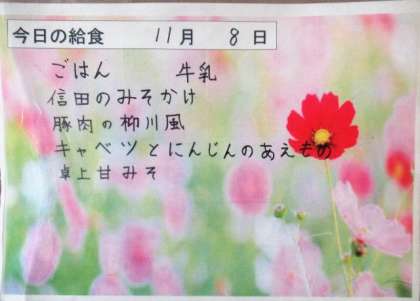 今日の給食 11月 8日
ごはん 牛乳
信田のみそかけ
豚肉の柳川風
キャベツとにんじんのあえもの
卓上甘みそ